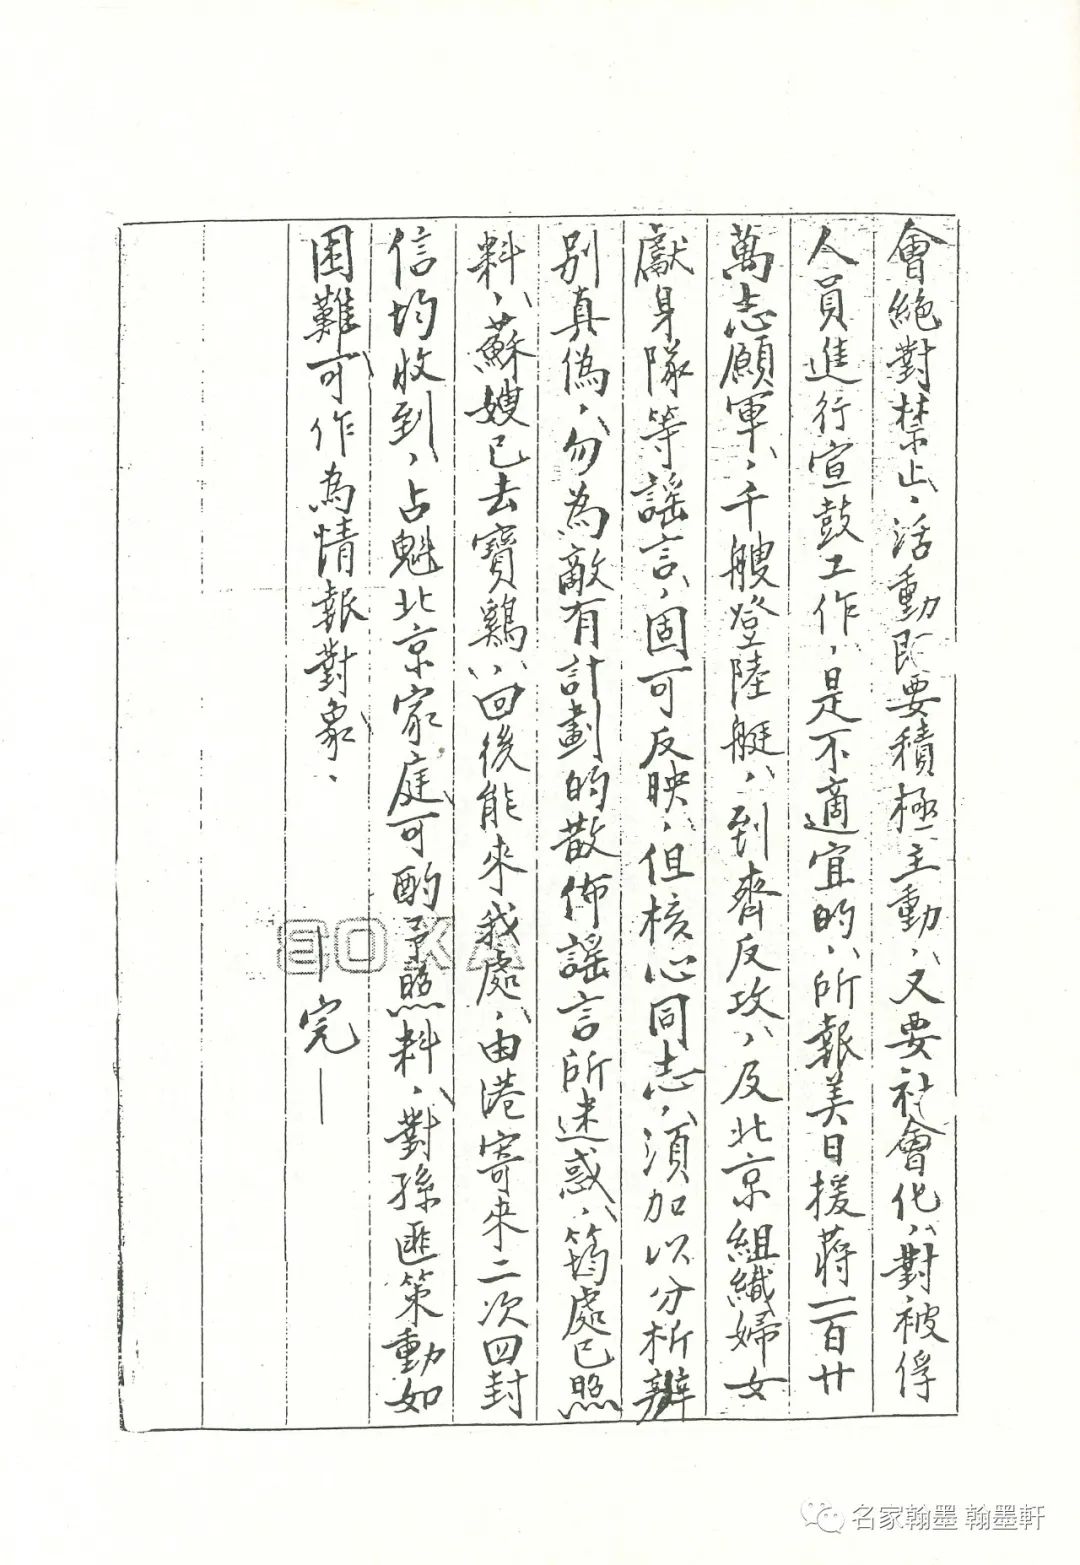 會絕對禁止、活動即要積極主動、又要社會化、對被俘
人員進行宣鼓工作、是不適宜的、所報美日援蔣一百廿
萬志願軍、千艘登陸艇、到齊反攻、及北京組織婦女
獻身隊等謠言、固可反映、但核心同志、須加以分析辨
別真偽、勿為敵有計劃的散佈謠言所迷惑、筠處已照
料、蘇嫂已去寶鷄、回後能來我處、由港寄來二次四封
信均收到、占魁北京家庭可酌予照料、對孫匪策動如
困難可作為情報對象、
—完—
名家翰墨 翰墨軒